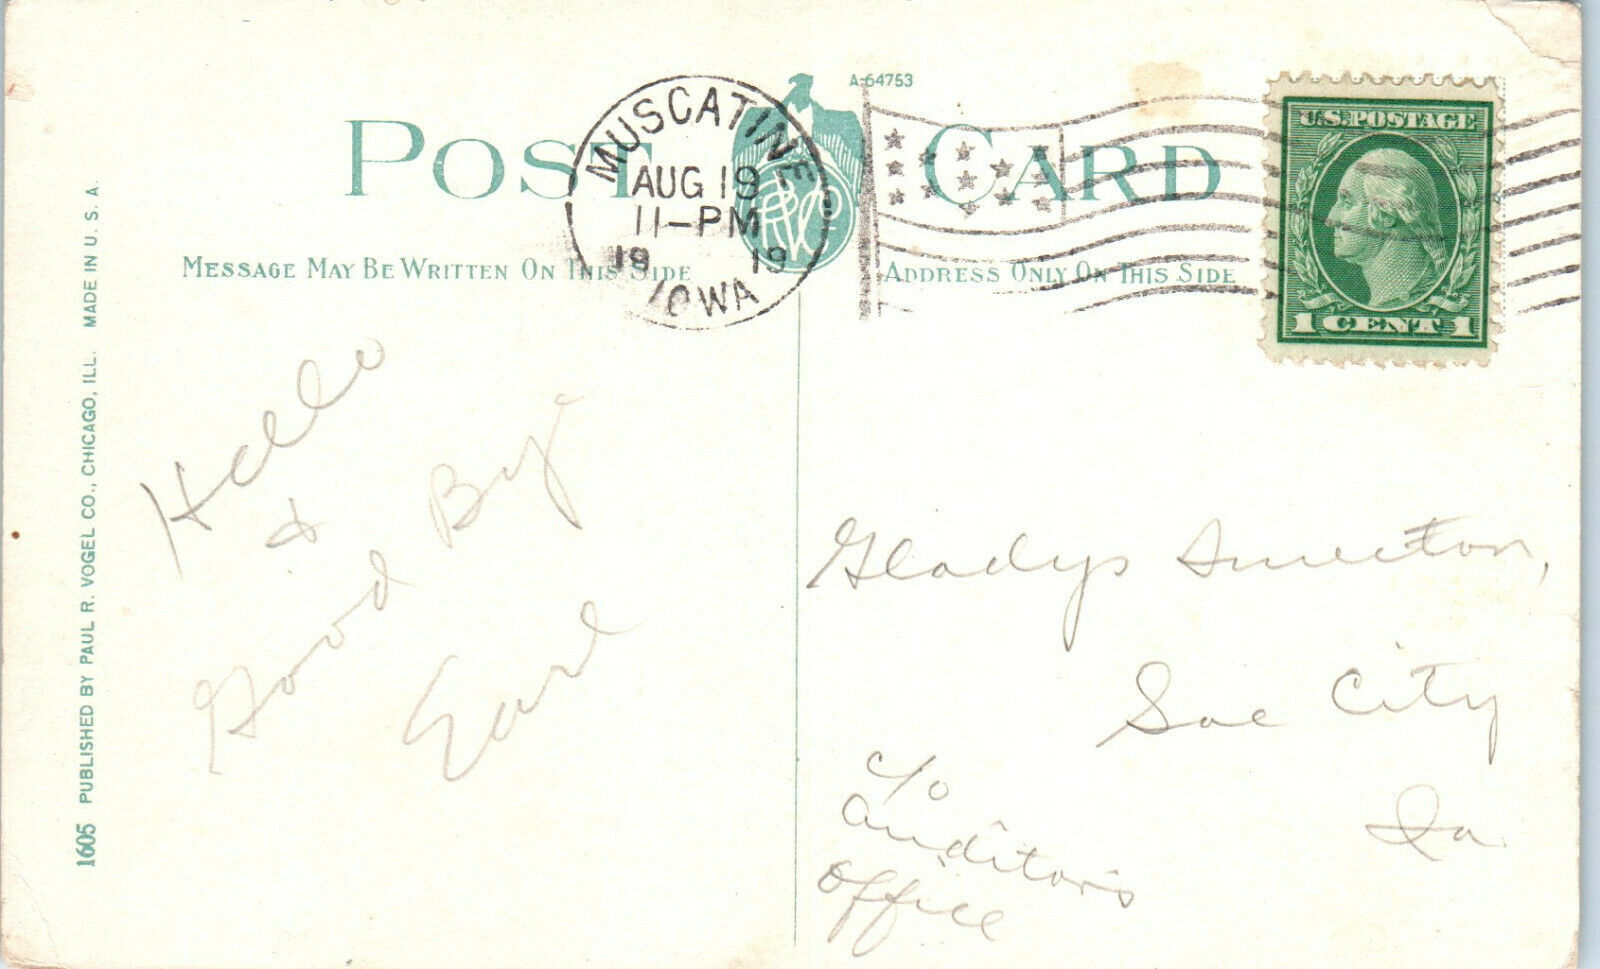 A-64753
POST CARD
MUSCATINE
AUG 19
11-PM
19 19
IOWA
U.S. POSTAGE
1 CENT 1
MESSAGE MAY BE WRITTEN ON THIS SIDE
ADDRESS ONLY ON THIS SIDE
Hello
&
Good Bye
Earl
Gladys
Sac City
Ia
c/o
Auditor's
Office
1605 PUBLISHED BY PAUL R. VOGEL CO., CHICAGO, ILL. MADE IN U.S.A.